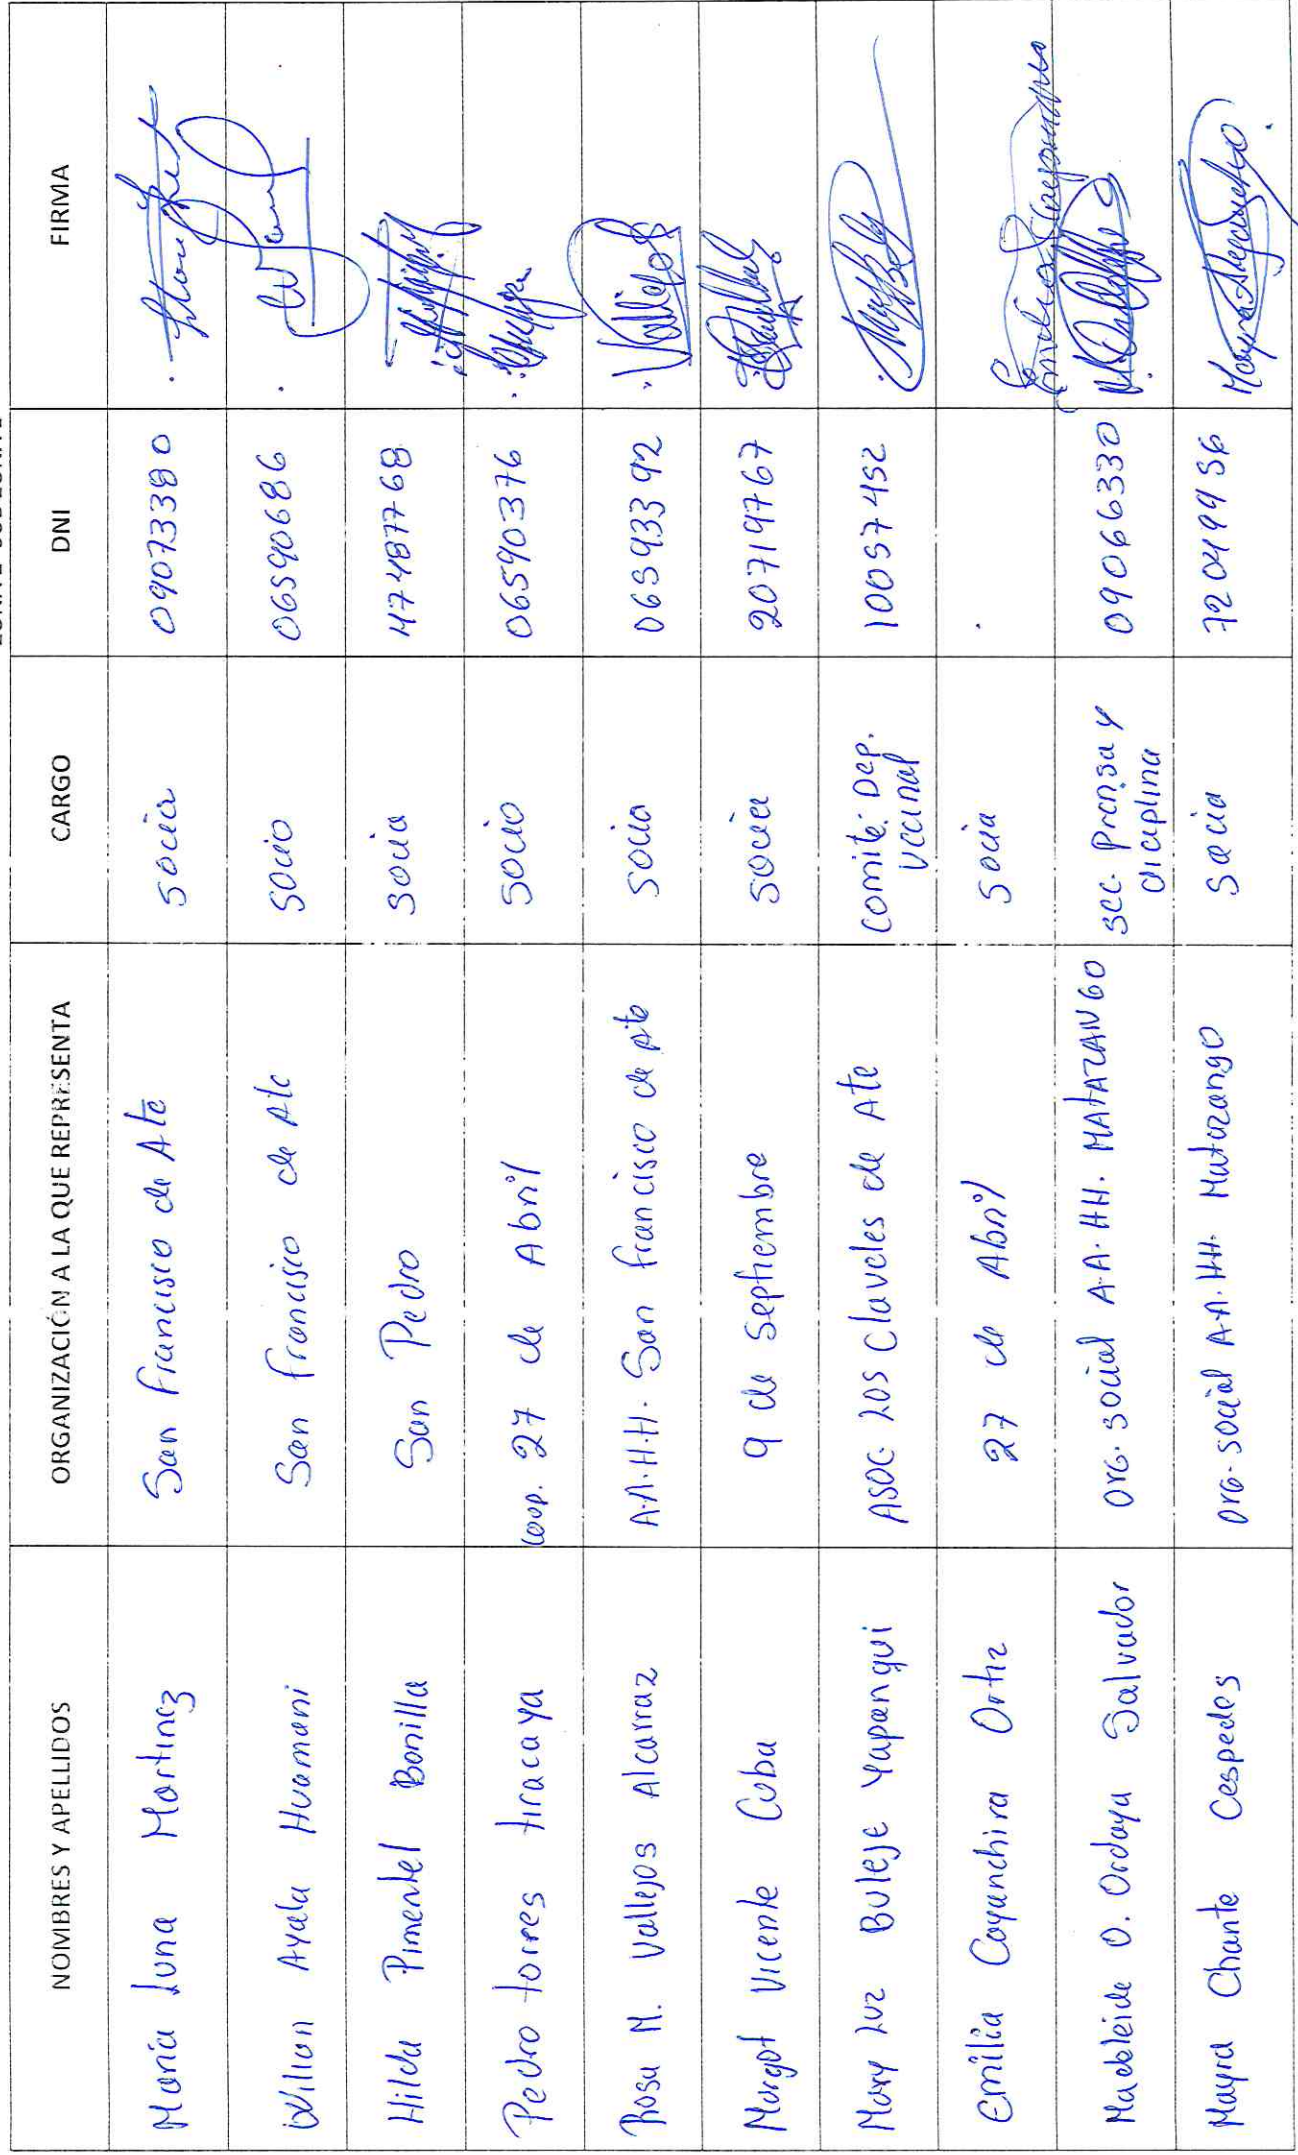 NOMBRES Y APELLIDOS ORGANIZACIÓN A LA QUE REPRESENTA CARGO DNI FIRMA
Maria Luna Martinez San Francisco de Ate socia 09073380
Wilian Ayala Huamani San Francisco de Ate socio 06590686
Hilda Pimentel Bonilla San Pedro socia 47487768
Pedro torres tiracaya coop. 27 de Abril socio 06590376
Rosa M. Vallejos Alcarraz A.A.H.H. San Francisco de Ate socia 06593392 Vallejos
Margot Vicente Cuba 9 de Septiembre socia 20719767
Mary Luz Buleje Yapanqui ASOC. Los Claveles de Ate comité. Dep. 10057452
vecinal
Emilia Coyanchira Ortiz 27 de Abril socia
Madeleide O. Ordaya Salvador Org. social A.A.HH. MATAZANGO sec. Prensa y 09066330
diciplina
Mayra Chante Cespedes Org. social A.A.HH. Matazango socia 72049956